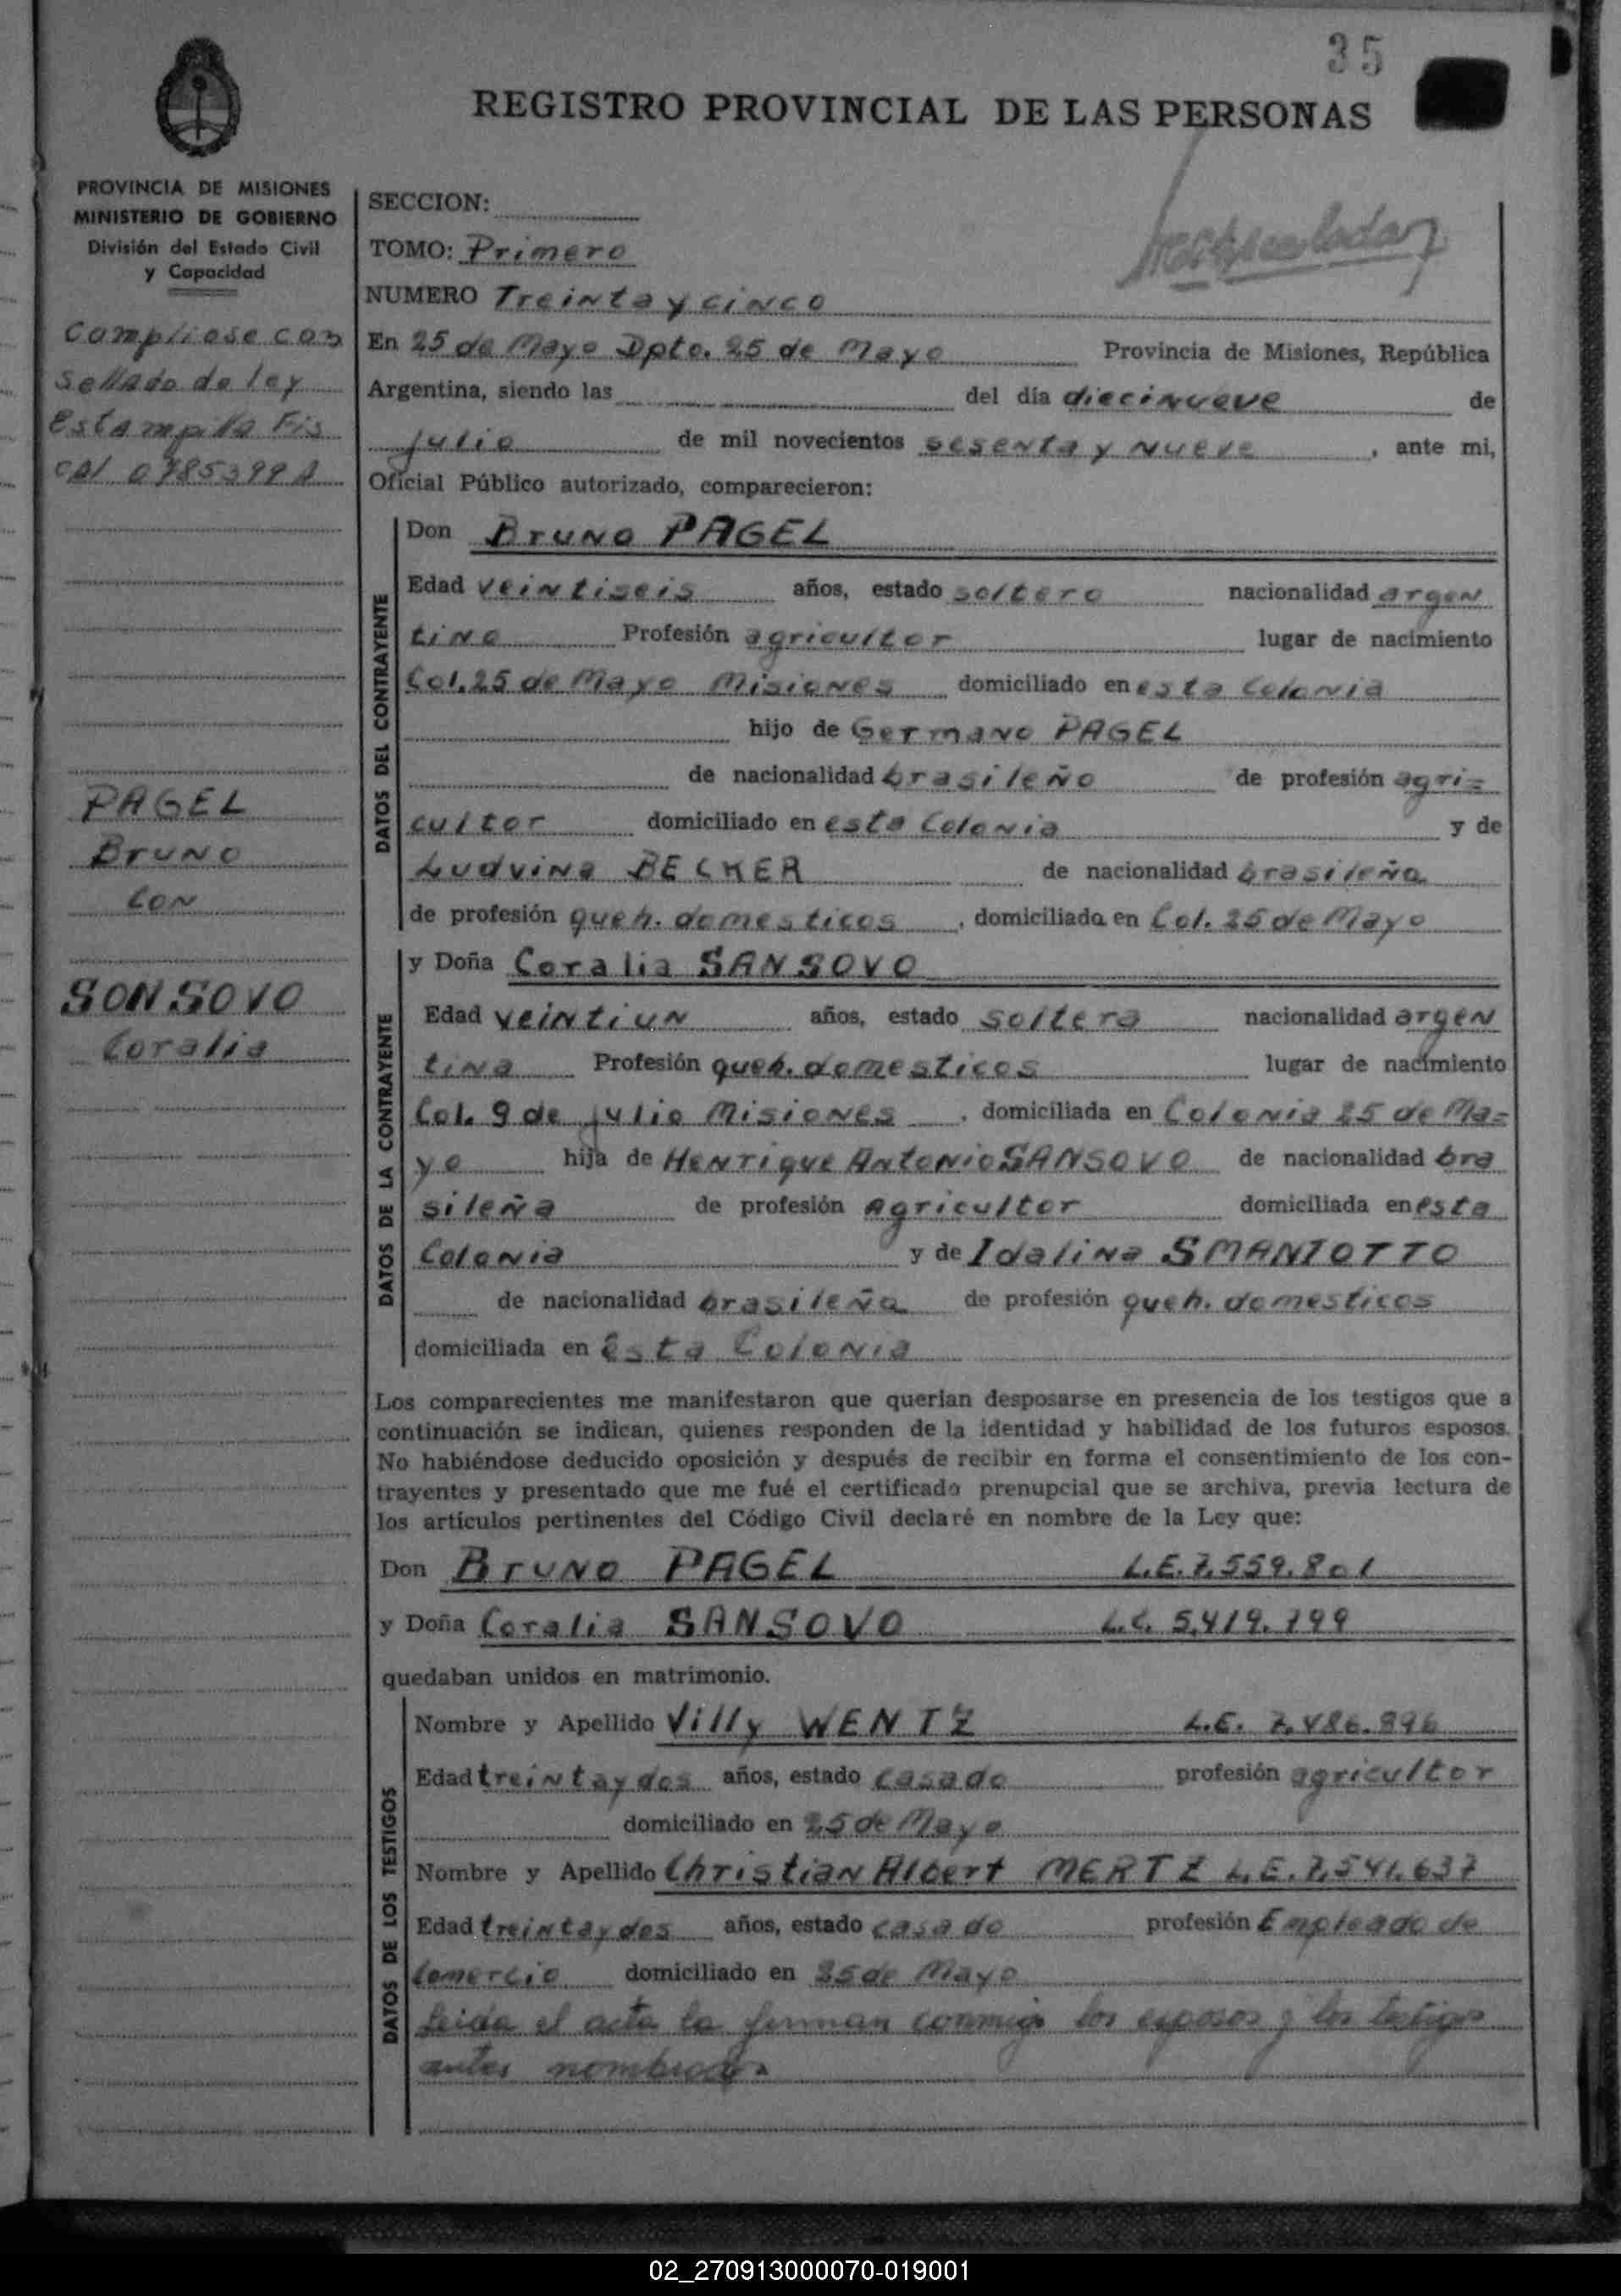 35
REGISTRO PROVINCIAL DE LAS PERSONAS
PROVINCIA DE MISIONES
MINISTERIO DE GOBIERNO
División del Estado Civil
y Capacidad
Compliose con
sellado de ley
Estampilla Fis
cal
PAGEL
Bruno
con
SONSOVO
Coralia
SECCION:
TOMO: Primero
NUMERO Treinta y cinco
En 25 de Mayo Dpto. 25 de Mayo Provincia de Misiones, República
Argentina, siendo las del día diecinueve de
julio de mil novecientos sesenta y nueve, ante mi,
Oficial Público autorizado, comparecieron:
DATOS DEL CONTRAYENTE
Don Bruno PAGEL
Edad veintiseis años, estado soltero nacionalidad argen
tino Profesión agricultor lugar de nacimiento
Col. 25 de Mayo Misiones domiciliado en esta Colonia
hijo de Germano PAGEL
de nacionalidad brasileño de profesión agri=
cultor domiciliado en esta Colonia y de
Ludvina BECKER de nacionalidad brasileña
de profesión queh. domesticos, domiciliada en Col. 25 de Mayo
DATOS DE LA CONTRAYENTE
y Doña Coralia SANSOVO
Edad veintiun años, estado soltera nacionalidad argen
tina Profesión queh. domesticos lugar de nacimiento
Col. 9 de julio Misiones, domiciliada en Colonia 25 de Ma=
yo hija de Henrique Antonio SANSOVO de nacionalidad bra
sileña de profesión Agricultor domiciliada en esta
Colonia y de Idalina SMANIOTTO
de nacionalidad brasileña de profesión queh. domesticos
domiciliada en esta Colonia
Los comparecientes me manifestaron que querían desposarse en presencia de los testigos que a
continuación se indican, quienes responden de la identidad y habilidad de los futuros esposos.
No habiéndose deducido oposición y después de recibir en forma el consentimiento de los con-
trayentes y presentado que me fué el certificado prenupcial que se archiva, previa lectura de
los artículos pertinentes del Código Civil declaré en nombre de la Ley que:
Don Bruno PAGEL L.E. 7.559.801
y Doña Coralia SANSOVO L.C. 5.419.199
quedaban unidos en matrimonio.
DATOS DE LOS TESTIGOS
Nombre y Apellido Villy WENTZ L.E. 7.486.896
Edad treinta y dos años, estado casado profesión agricultor
domiciliado en 25 de Mayo
Nombre y Apellido Christian Albert MERTZ L.E. 7.541.637
Edad treinta y dos años, estado casado profesión Empleado de
Comercio domiciliado en 25 de Mayo
Leida el acta la firman conmigo los esposos y los testigos
antes nombrados
02_270913000070-019001